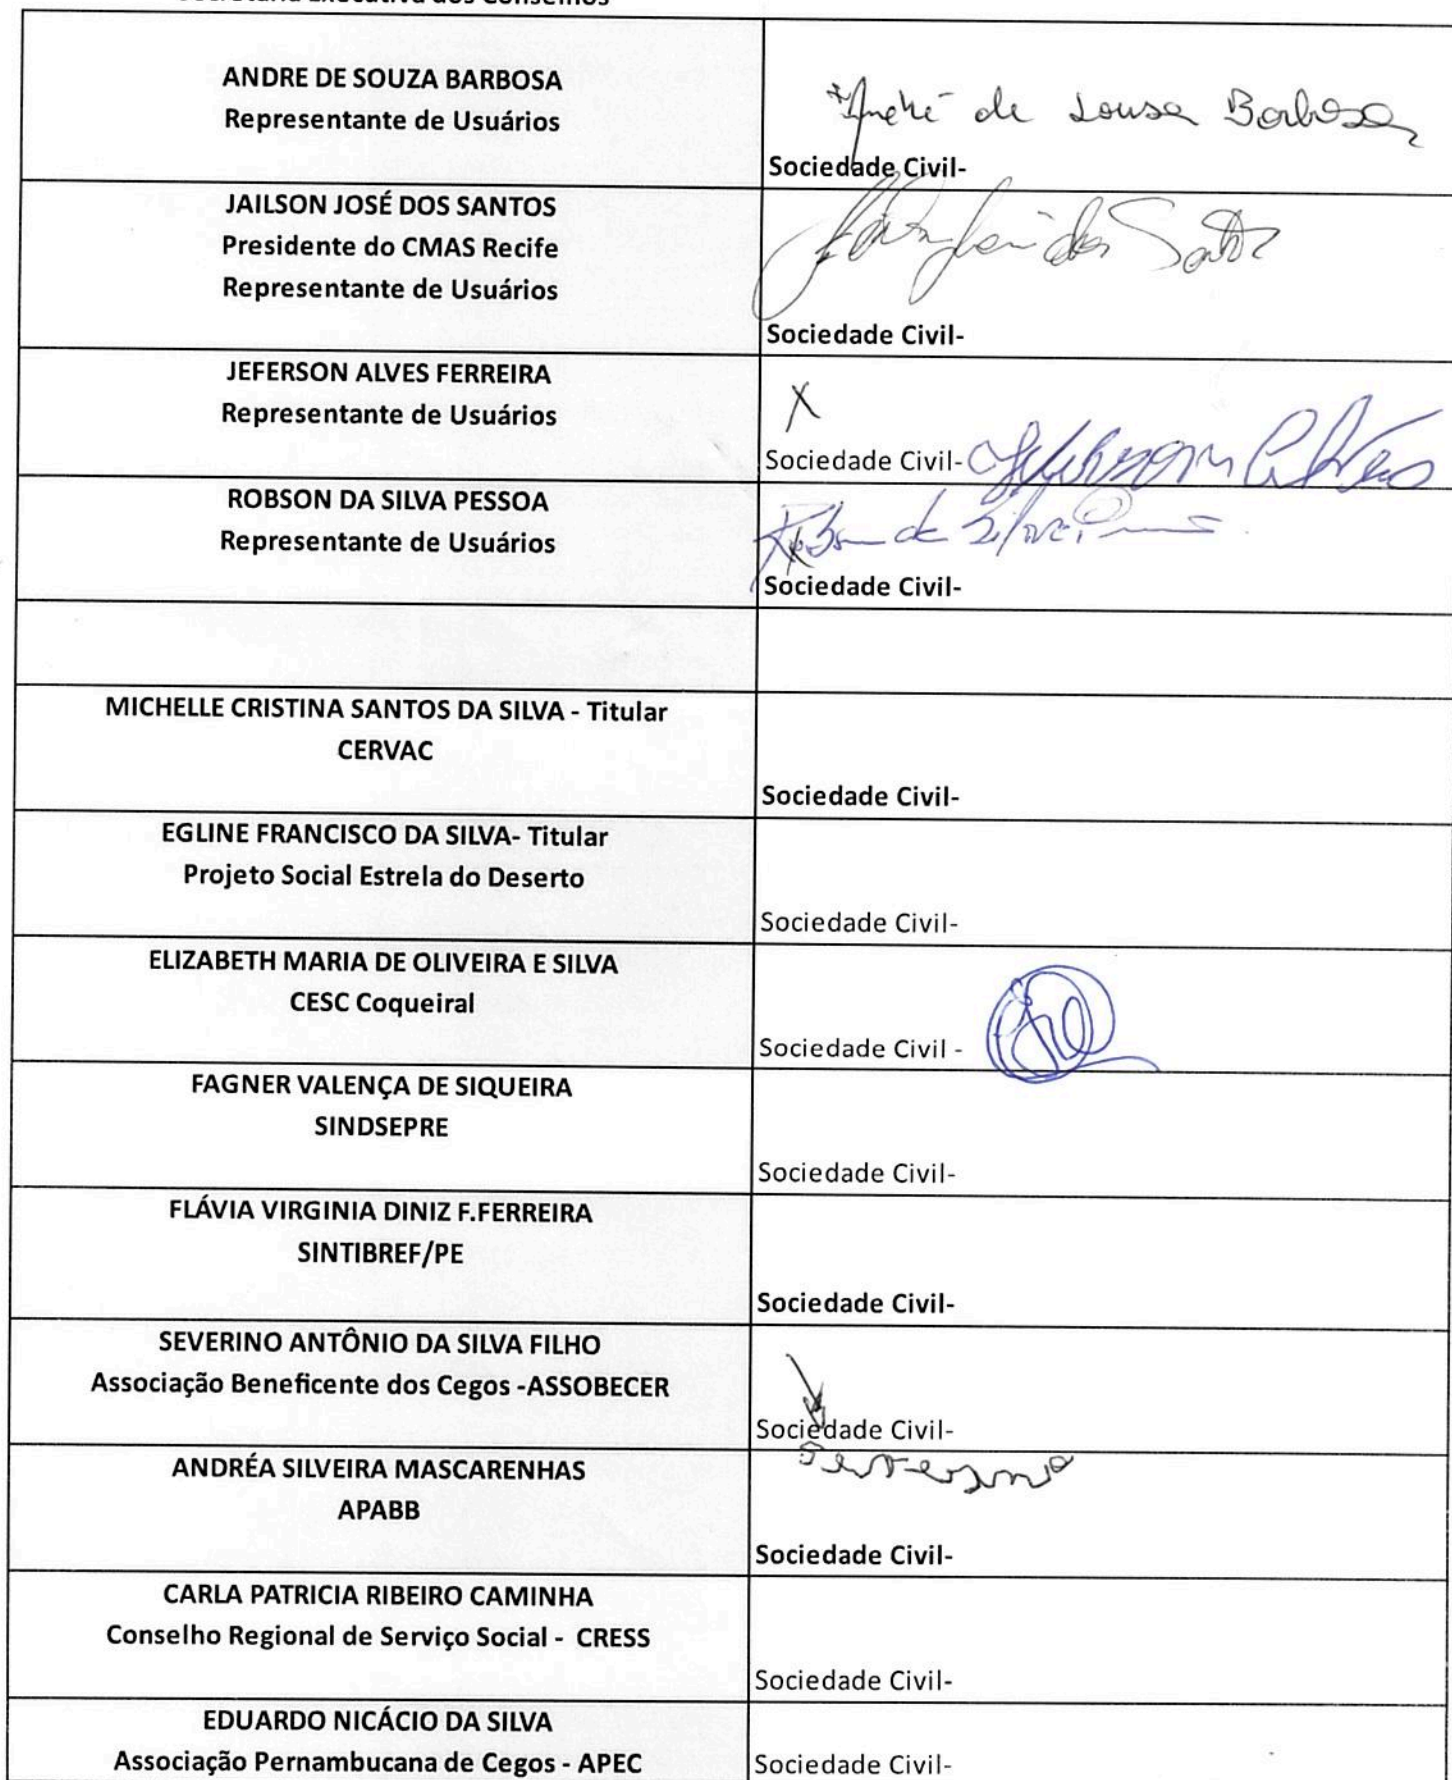 ANDRE DE SOUZA BARBOSA
Representante de Usuários
André de Sousa Barbosa
Sociedade Civil-
JAILSON JOSÉ DOS SANTOS
Presidente do CMAS Recife
Representante de Usuários
dos Santos
Sociedade Civil-
JEFERSON ALVES FERREIRA
Representante de Usuários
X
Sociedade Civil-
ROBSON DA SILVA PESSOA
Representante de Usuários
Robson da Silva
Sociedade Civil-
MICHELLE CRISTINA SANTOS DA SILVA - Titular
CERVAC
Sociedade Civil-
EGLINE FRANCISCO DA SILVA- Titular
Projeto Social Estrela do Deserto
Sociedade Civil-
ELIZABETH MARIA DE OLIVEIRA E SILVA
CESC Coqueiral
Sociedade Civil -
FAGNER VALENÇA DE SIQUEIRA
SINDSEPRE
Sociedade Civil-
FLÁVIA VIRGINIA DINIZ F.FERREIRA
SINTIBREF/PE
Sociedade Civil-
SEVERINO ANTÔNIO DA SILVA FILHO
Associação Beneficente dos Cegos -ASSOBECER
Sociedade Civil-
Severino
ANDRÉA SILVEIRA MASCARENHAS
APABB
Sociedade Civil-
CARLA PATRICIA RIBEIRO CAMINHA
Conselho Regional de Serviço Social - CRESS
Sociedade Civil-
EDUARDO NICÁCIO DA SILVA
Associação Pernambucana de Cegos - APEC
Sociedade Civil-